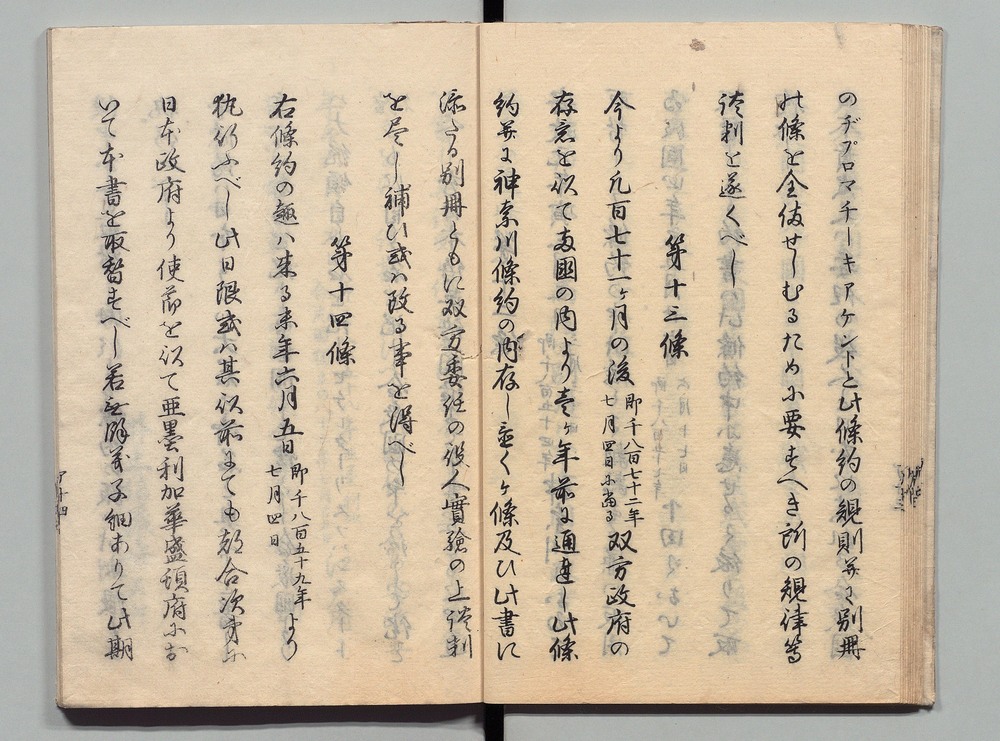 のヂプロマチーキアケントと此條約の規則并に別冊
の條を全備せしむるため尓要すへき所の規律等
談判を遂くべし
第十三條
今より凡百七十一ヶ月の後 即千八百七十二年七月四日尓当る 双方政府の
存意を以て両國の内より壱ヶ年前に通達し此條
約并に神奈川條約の内存し置くヶ條及ひ此書に
添たる別冊ともに双方委任の役人實驗の上談判
を尽し補ひ或ハ改る事を得べし
第十四條
右條約の趣ハ来る未年六月五日 即千八百五十九年七月四日 より
執行ふべし此日限或ハ其以前にても都合次第尓
日本政府より使節を以て亜墨利加華盛頓府尓お
いて本書を取替すべし若無餘義子細ありて此期
丁十四